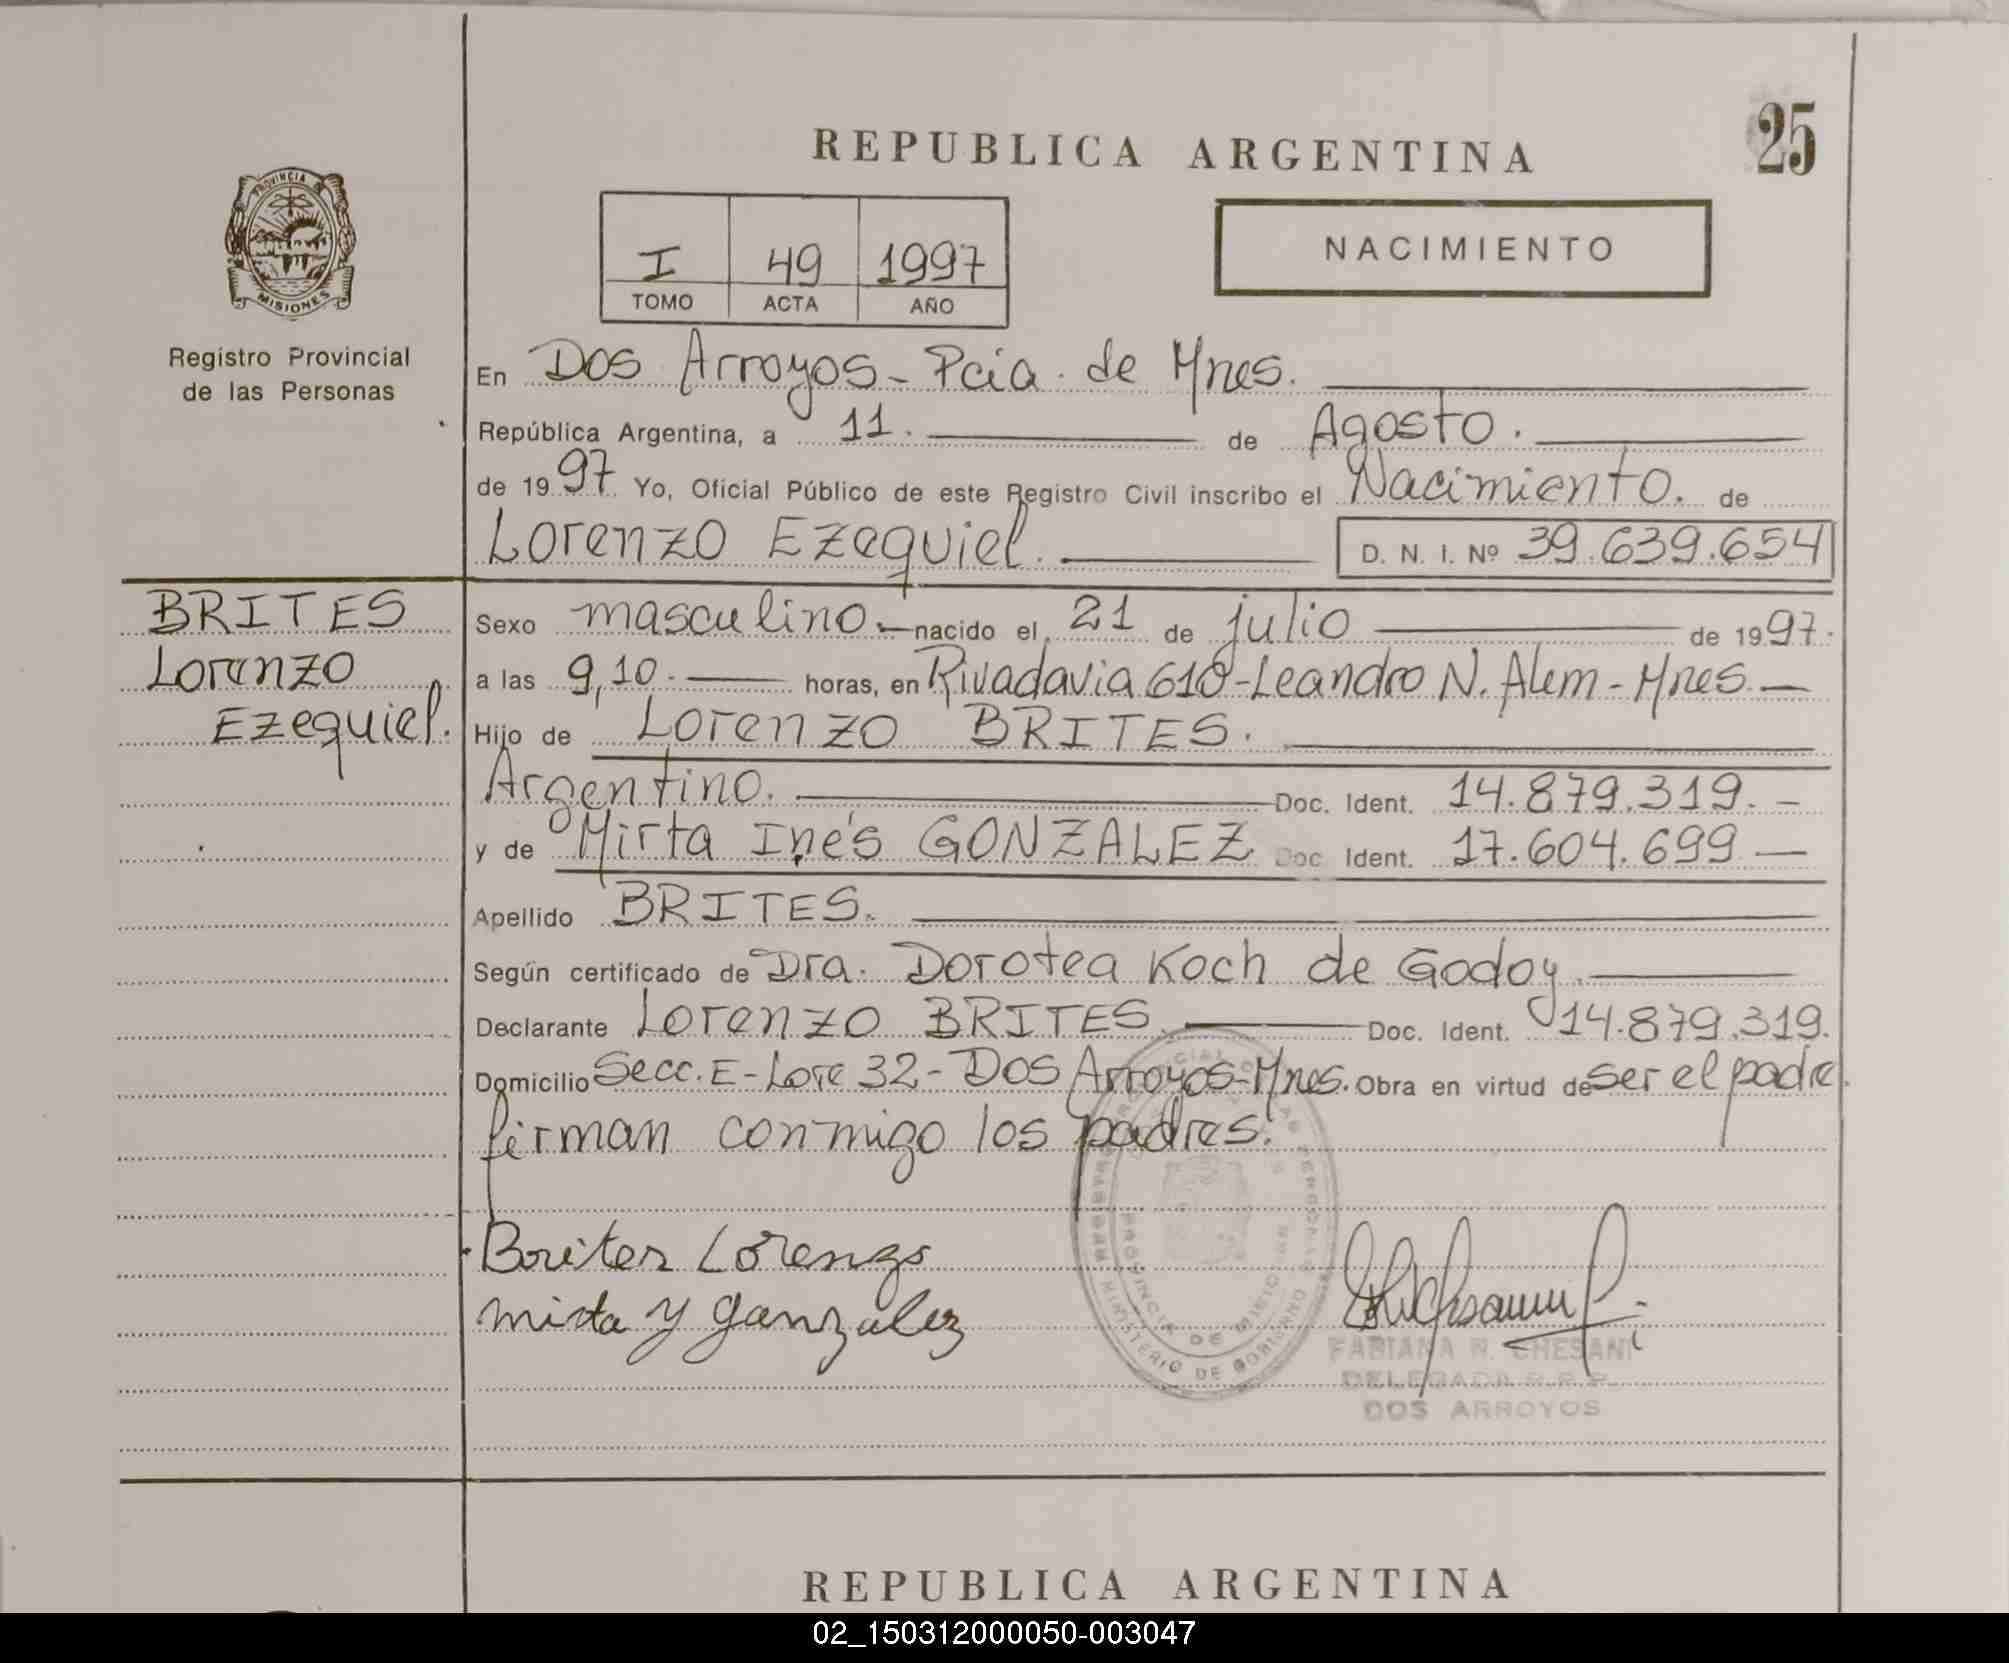 REPUBLICA ARGENTINA
25
PROVINCIA DE
MISIONES
Registro Provincial
de las Personas
I 49 1997
TOMO ACTA AÑO
NACIMIENTO
En Dos Arroyos - Pcia. de Mnes.
República Argentina, a 11. de Agosto.
de 1997 Yo, Oficial Público de este Registro Civil inscribo el Nacimiento. de
Lorenzo Ezequiel. D. N. I. Nº 39.639.654
BRITES
Lorenzo
Ezequiel.
Sexo masculino.- nacido el 21 de julio de 1997.
a las 9,10.- horas, en Rivadavia 610-Leandro N. Alem - Mnes.-
Hijo de Lorenzo BRITES.
Argentino. Doc. Ident. 14.879.319.-
y de Mirta Inés GONZALEZ Doc. Ident. 17.604.699-
Apellido BRITES.
Según certificado de Dra. Dorotea Koch de Godoy.
Declarante Lorenzo BRITES. Doc. Ident. 14.879.319.
Domicilio Secc. E - Lote 32 - Dos Arroyos - Mnes. Obra en virtud de ser el padre.
firman conmigo los padres.
Brites Lorenzo
mirta y ganzalez
PROVINCIA DE MISIONES
MINISTERIO DE GOBIERNO
FABIANA R. CHESANI
DELEGADA R.R.P.
DOS ARROYOS
REPUBLICA ARGENTINA
02_150312000050-003047